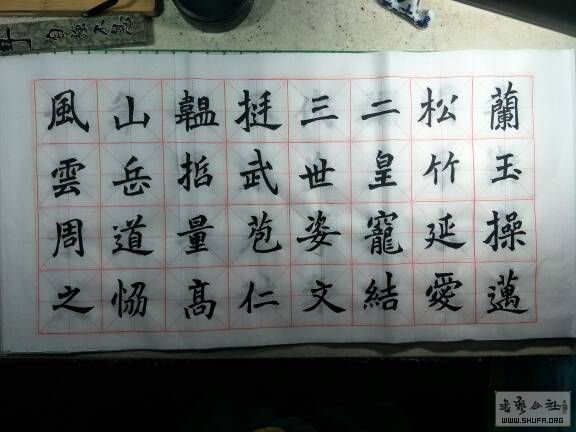 蘭玉操邁
松竹延愛
二皇寵結
三世姿文
挺武苞仁
韞哲量髙
山岳道恊
風雲周之
自強不息
书艺公社
WWW.SHUFA.ORG